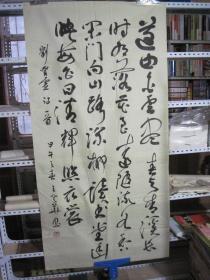 道由白雲盡春與青溪長
時有落花至遠隨流水香
閒門向山路深柳讀書堂幽
映每白日清輝照衣裳
劉昚虛詩
甲午